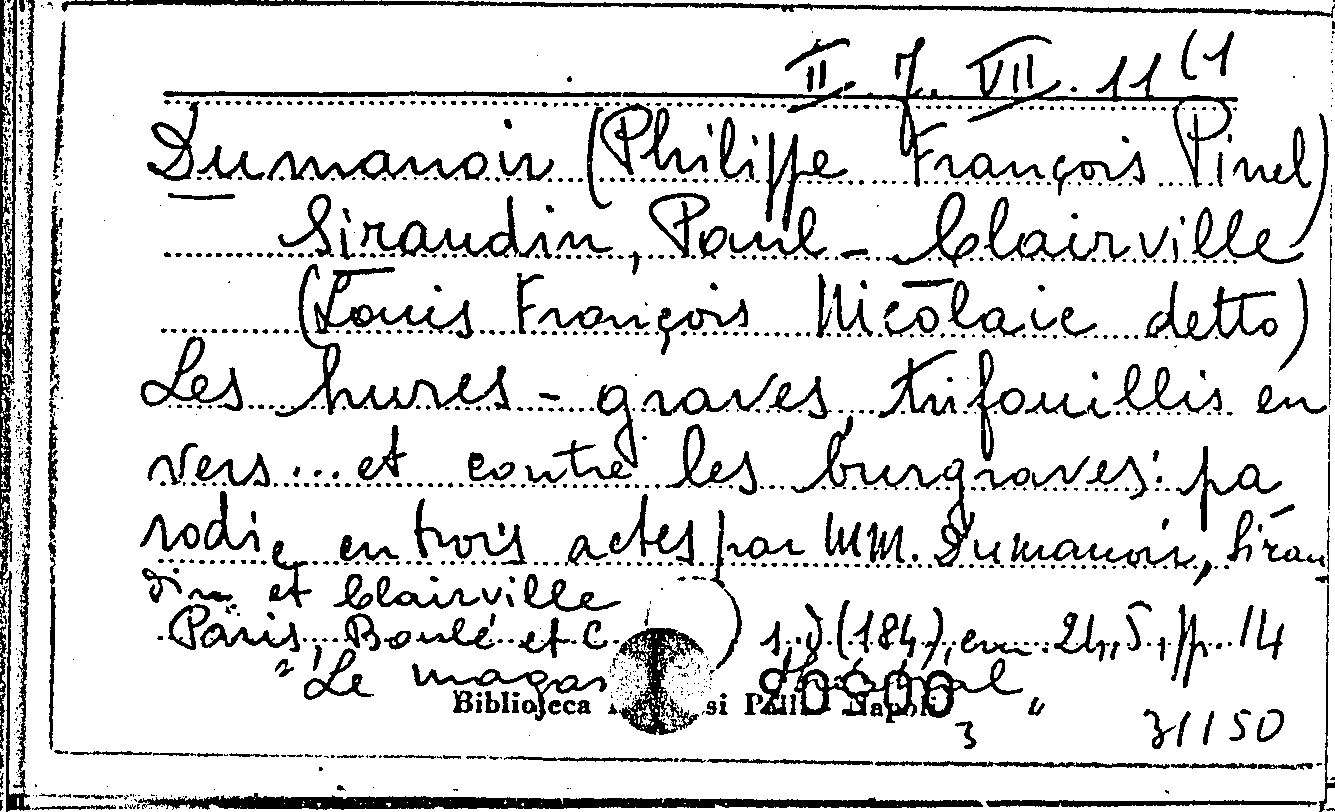 II. 7. VII. 11 (1
Dumanoir (Philippe François Pinel)
Siraudin, Paul - Clairville
(Louis François Nicolaie detto)
Les hures - graves, trifouillis en
vers... et contre les burgraves: pa
rodie en trois actes par MM. Dumanoir, Sirau
din et Clairville
Paris, Boulé et C. ) s.d (184), cm. 24,5, pp. 14
"Le
Biblioteca si Napoli
3 31150